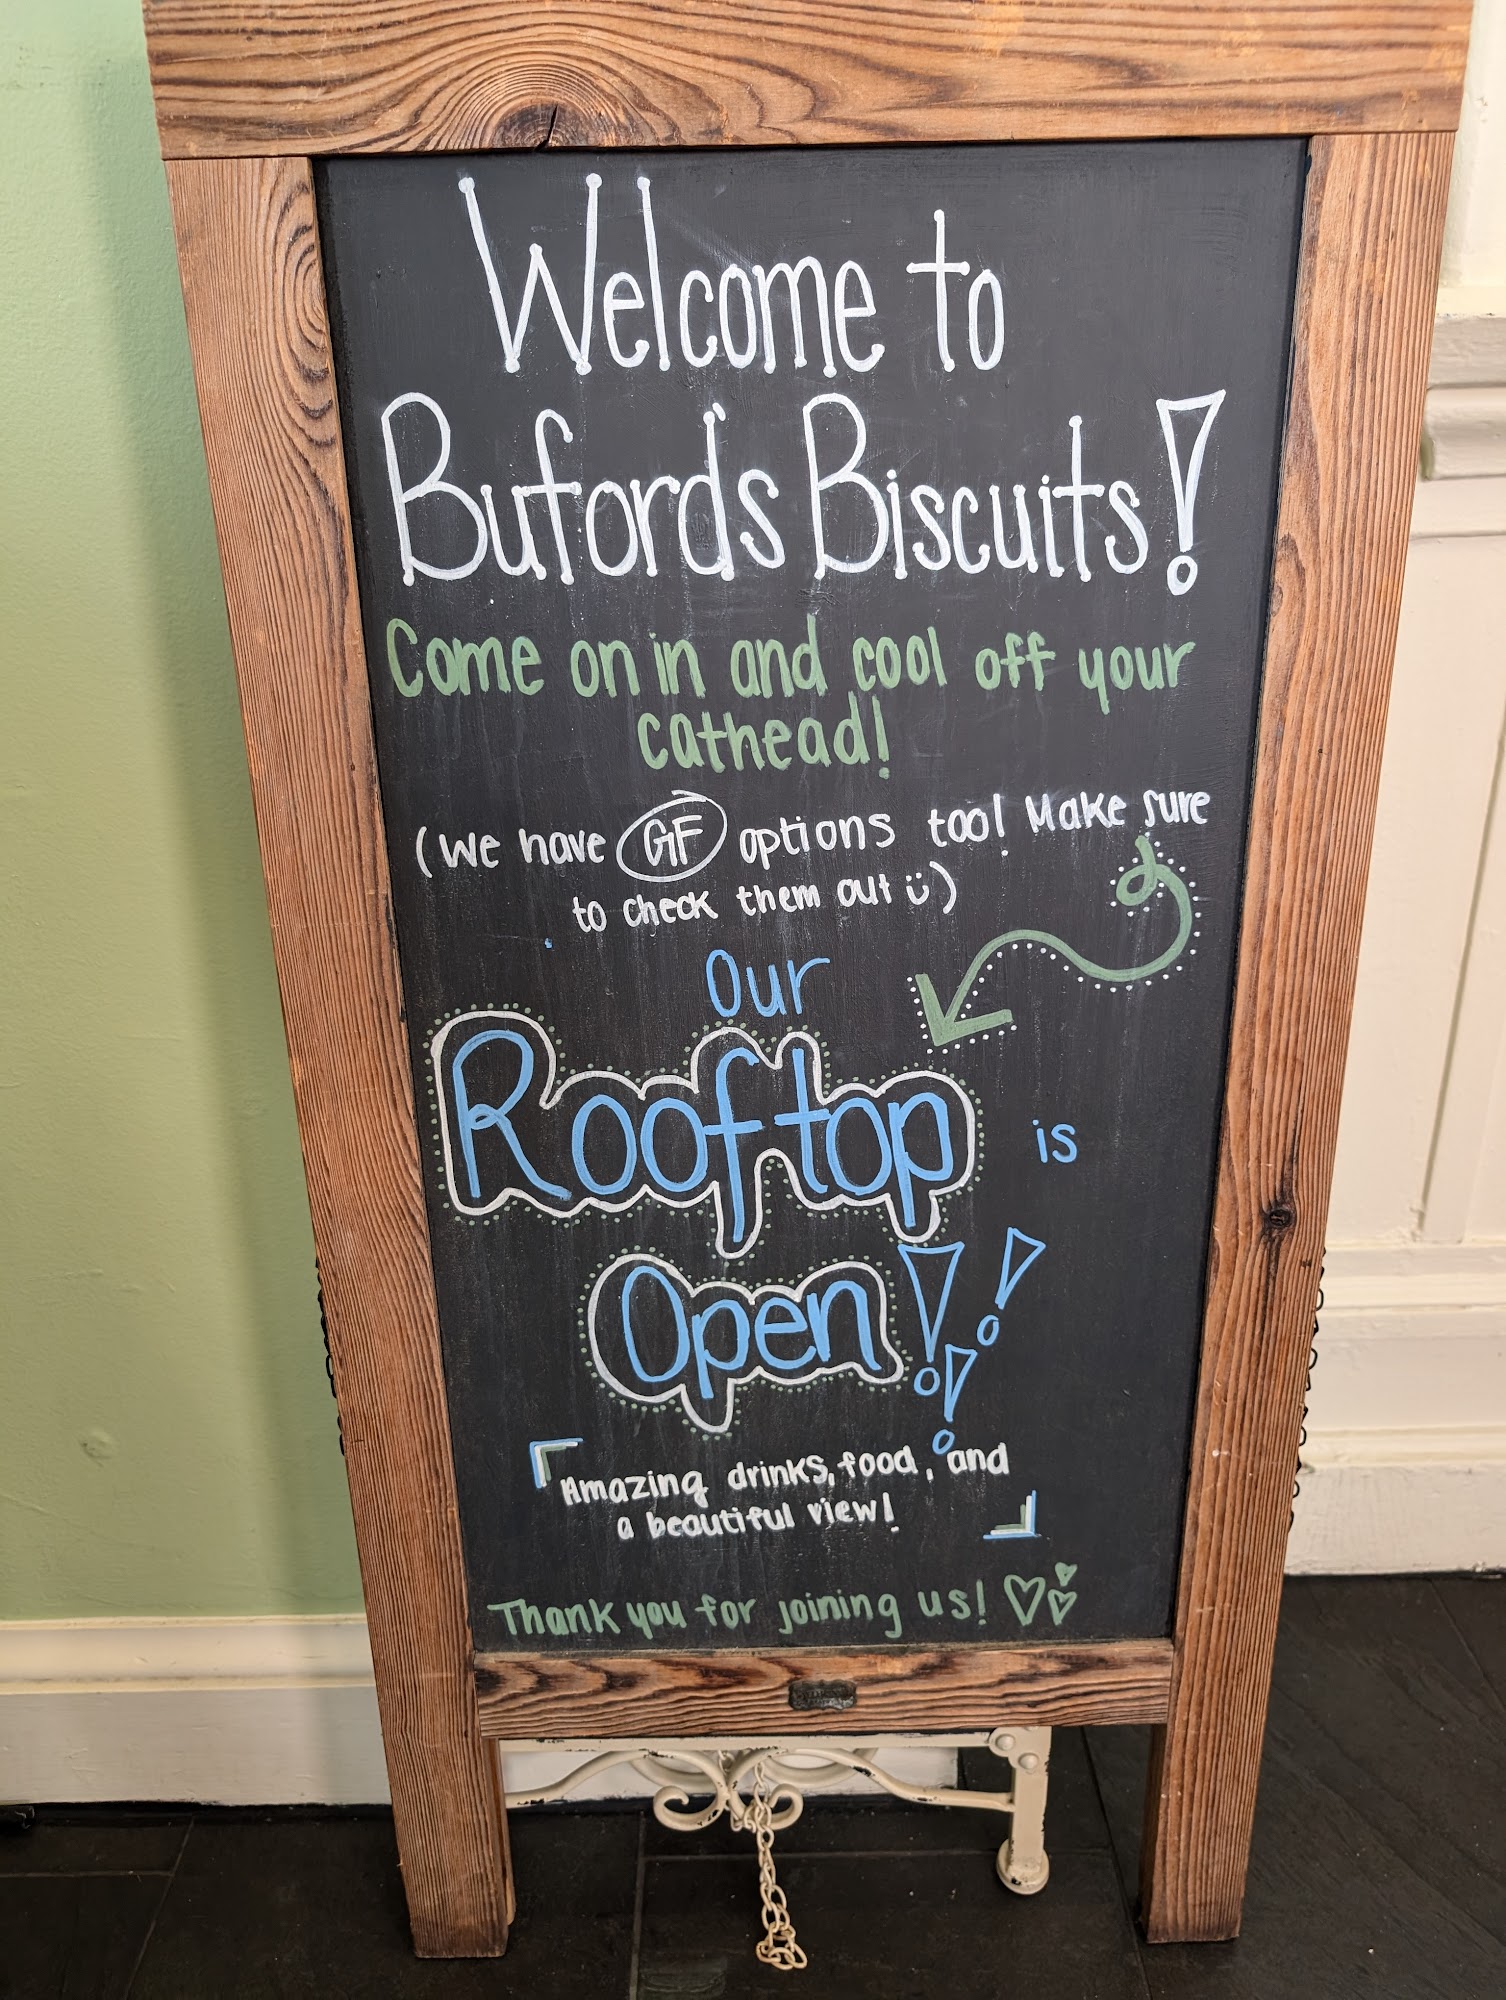 Welcome to
Buford's Biscuits!
Come on in and cool off your
cathead!
(We have GF options too! Make sure
to check them out ü)
Our
Rooftop is
Open!!!
Amazing drinks, food, and
a beautiful view!
Thank you for joining us! ♡♡♡